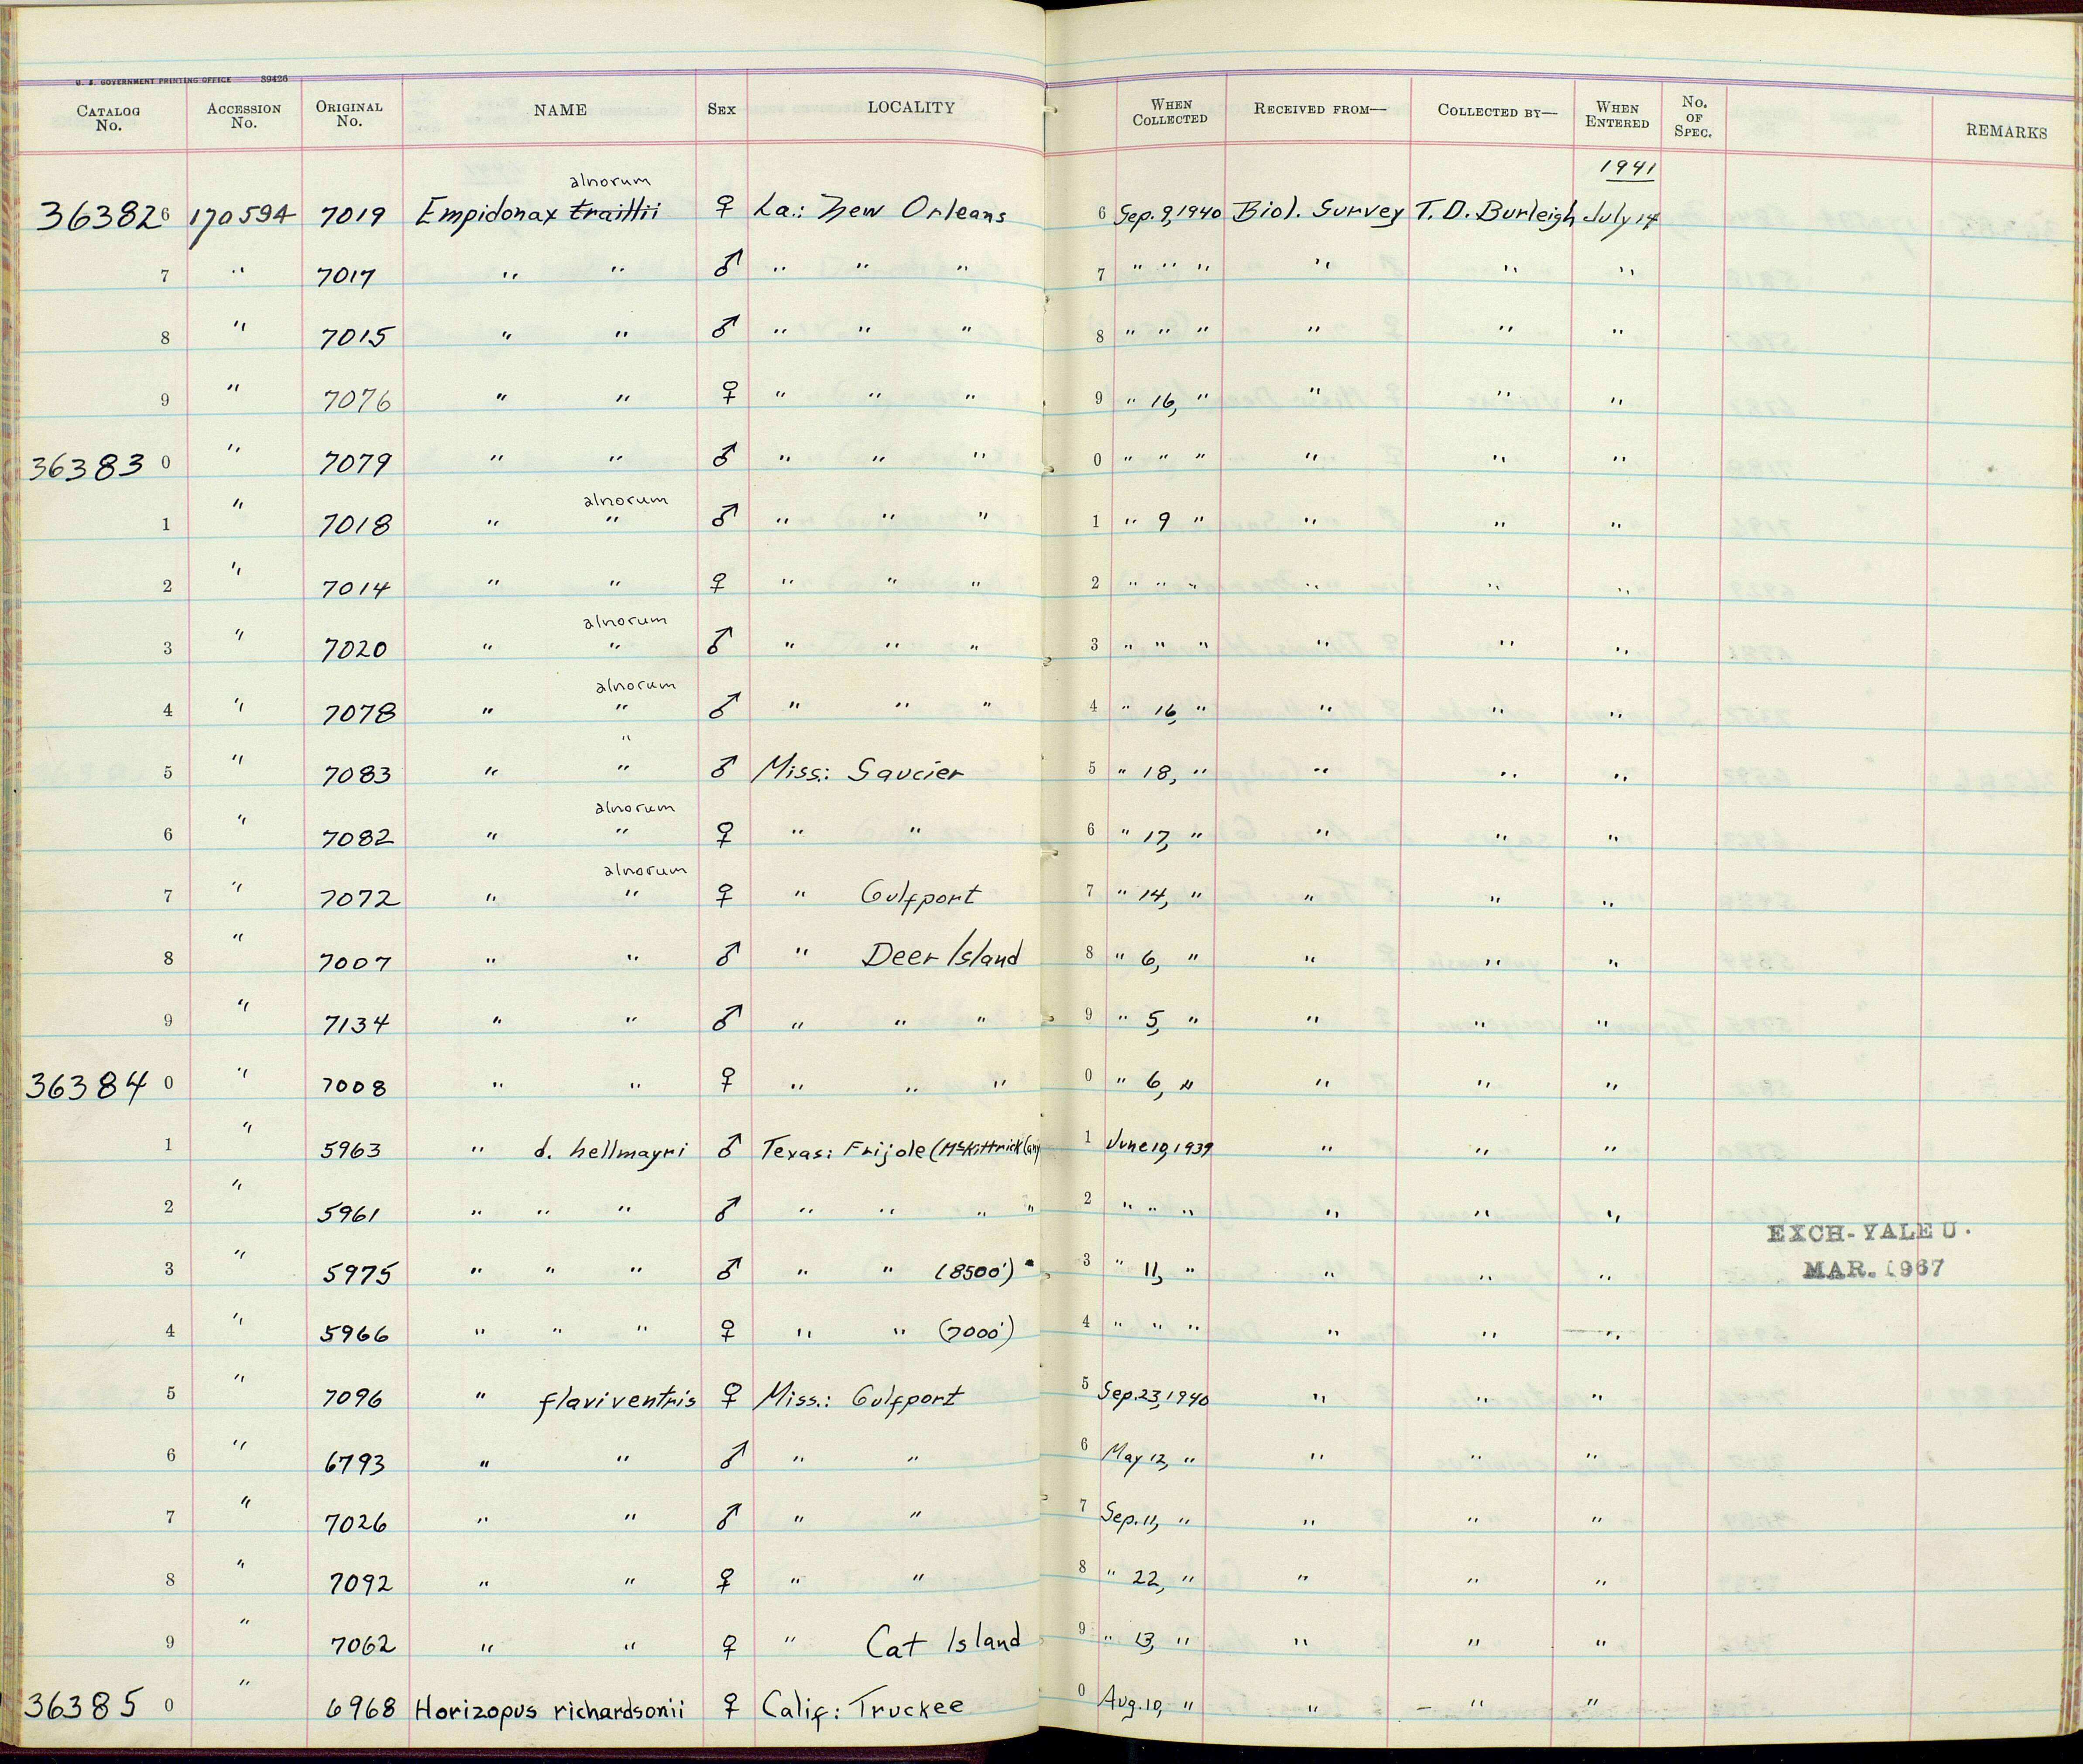 U. S. GOVERNMENT PRINTING OFFICE 39426
CATALOG No. ACCESSION No. ORIGINAL No. NAME SEX LOCALITY WHEN COLLECTED RECEIVED FROM— COLLECTED BY— WHEN ENTERED No. OF SPEC. REMARKS
1941
alnorum
363826 170594 7019 Empidonax traillii ♀ La.: New Orleans 6 Sep. 9, 1940 Biol. Survey T. D. Burleigh July 14
7 " 7017 " " ♂ " " " 7 " " " " " "
8 " 7015 " " ♂ " " " 8 " " " " " "
9 " 7076 " " ♀ " " " 9 " 16, " " " "
363830 " 7079 " " ♂ " " " 0 " " " " " "
alnorum
1 " 7018 " " ♂ " " " 1 " 9 " " " "
2 " 7014 " " ♀ " " " 2 " " " " " "
alnorum
3 " 7020 " " ♂ " " " 3 " " " " " "
alnorum
4 " 7078 " " ♂ " " " 4 " 16, " " " "
"
5 " 7083 " " ♂ Miss.: Saucier 5 " 18, " " " "
alnorum
6 " 7082 " " ♀ " " 6 " 17, " " " "
alnorum
7 " 7072 " " ♀ " Gulfport 7 " 14, " " " "
8 " 7007 " " ♂ " Deer Island 8 " 6, " " " "
9 " 7134 " " ♂ " " " 9 " 5, " " " "
363840 " 7008 " " ♀ " " " 0 " 6, " " " "
1 " 5963 " d. hellmayri ♂ Texas: Frijole (McKittrick Can) 1 June 10, 1939 " " "
2 " 5961 " " " ♂ " " " " 2 " " " " " "
3 " 5975 " " " ♂ " " (8500') " 3 " 11, " " " " EXCH-YALE U. MAR. 1967
4 " 5966 " " " ♀ " " (7000') 4 " " " " " "
5 " 7096 " flaviventris ♀ Miss.: Gulfport 5 Sep. 23, 1940 " " "
6 " 6793 " " ♂ " " 6 May 12, " " " "
7 " 7026 " " ♂ " " 7 Sep. 11, " " " "
8 " 7092 " " ♀ " " 8 " 22, " " " "
9 " 7062 " " ♀ " Cat Island 9 " 13, " " " "
363850 " 6968 Horizopus richardsonii ♀ Calif: Truckee 0 Aug. 10, " " " "